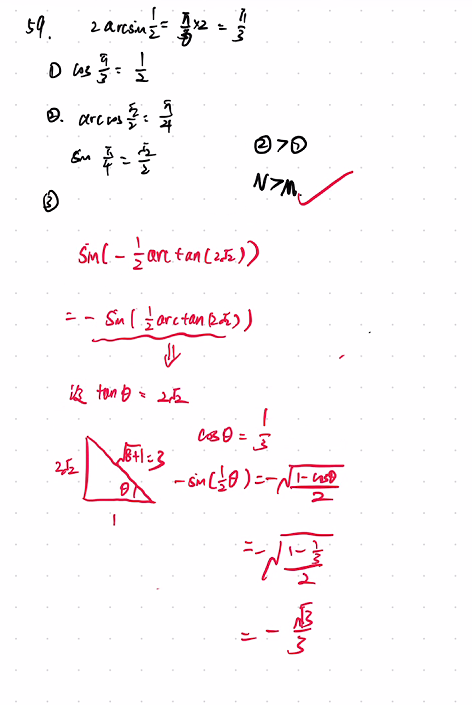 59. 2 arcsin 1/2 = π/6 ×2 = π/3
① cos π/3 = 1/2
②. arc cos √2/2 = π/4
sin π/4 = √2/2
② > ①
N > M
③
sin(-1/2 arc tan(2√2))
= - sin(1/2 arctan(2√2))
⇓
设 tan θ = 2√2
2√2
√8+1 = 3
θ
1
cos θ = 1/3
-sin(1/2 θ) = -√((1-cosθ)/2)
= -√((1-1/3)/2)
= - √3/3